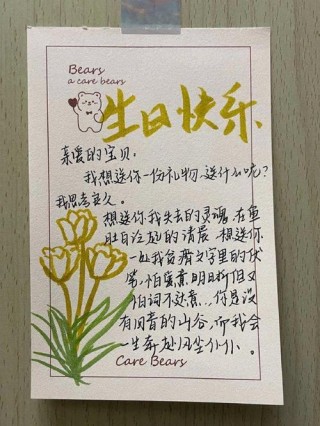 Bears
a care bears
生日快乐
亲爱的宝贝。
我想送你一份礼物，送什么呢？
我思考良久。
想送你，我失去的灵魂，在鱼
肚白泛起的清晨，想送你
一处我贫瘠文字里的伏
笔，怕寓意明晰但又
怕词不达意..，你是没
有回音的山谷，而我会
一生奔赴风尘仆仆。
Care Bears